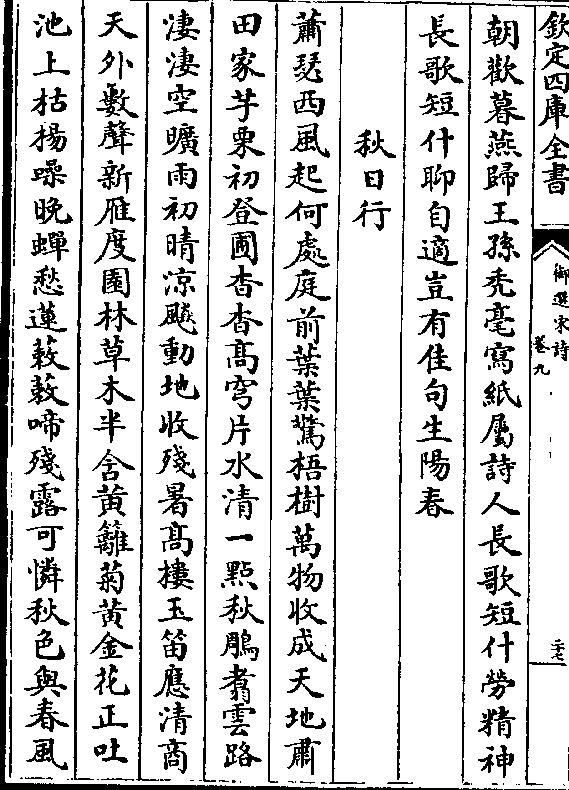 欽定四庫全書
御選宋詩
卷九
二十七
朝歡暮燕歸王孫禿毫寫紙屬詩人長歌短什勞精神
長歌短什聊自適豈有佳句生陽春
秋日行
蕭瑟西風起何處庭前葉葉驚梧樹萬物收成天地肅
田家芋栗初登圃杳杳高穹片水清一點秋鵰翥雲路
淒淒空曠雨初晴涼飈動地收殘暑高樓玉笛應清商
天外數聲新雁度園林草木半含黃籬菊黃金花正吐
池上枯楊噪晚蟬愁蓮蔌蔌啼殘露可憐秋色與春風